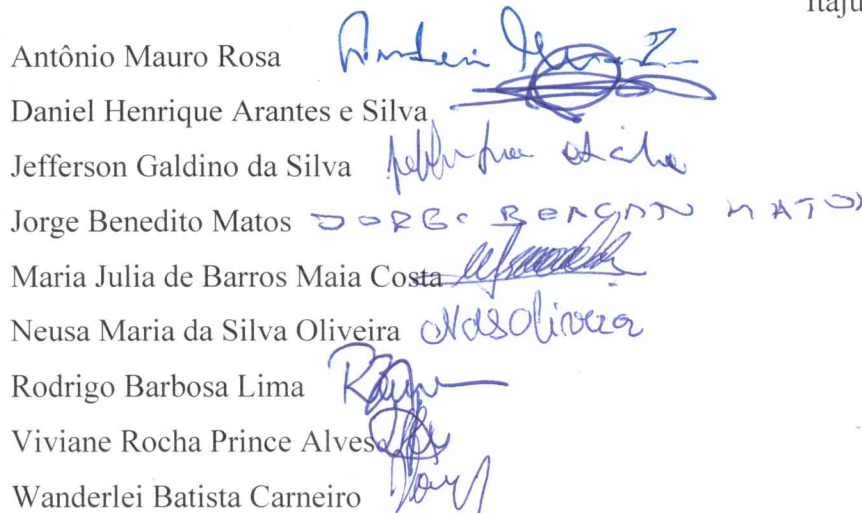 Itaju
Antônio Mauro Rosa
Daniel Henrique Arantes e Silva
Jefferson Galdino da Silva
Jorge Benedito Matos
Maria Julia de Barros Maia Costa
Neusa Maria da Silva Oliveira NdSOliveira
Rodrigo Barbosa Lima
Viviane Rocha Prince Alves
Wanderlei Batista Carneiro